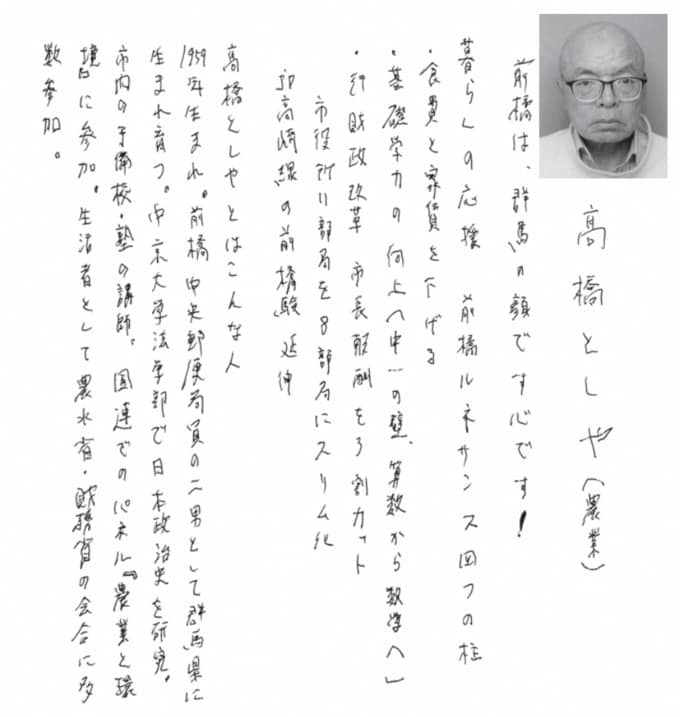 高橋としや(農業)
前橋は、群馬の顔です心です!
暮らしの応援 前橋ルネサンス四つの柱
・食費と家賃を下げる
・基礎学力の向上へ中一の壁、算数から数学へ」
・行財政改革 市長報酬を3割カット
市役所11部局を8部局にスリム化
JR高崎線の前橋駅延伸
高橋としやとはこんな人
1959年生まれ。前橋中央郵便局員の二男として群馬県に
生まれ育つ。中京大学法学部で日本政治史を研究。
市内の予備校・塾の講師。国連でのパネル『農業と環
境』に参加。生活者として農水省・財務省の会合に多
数参加。